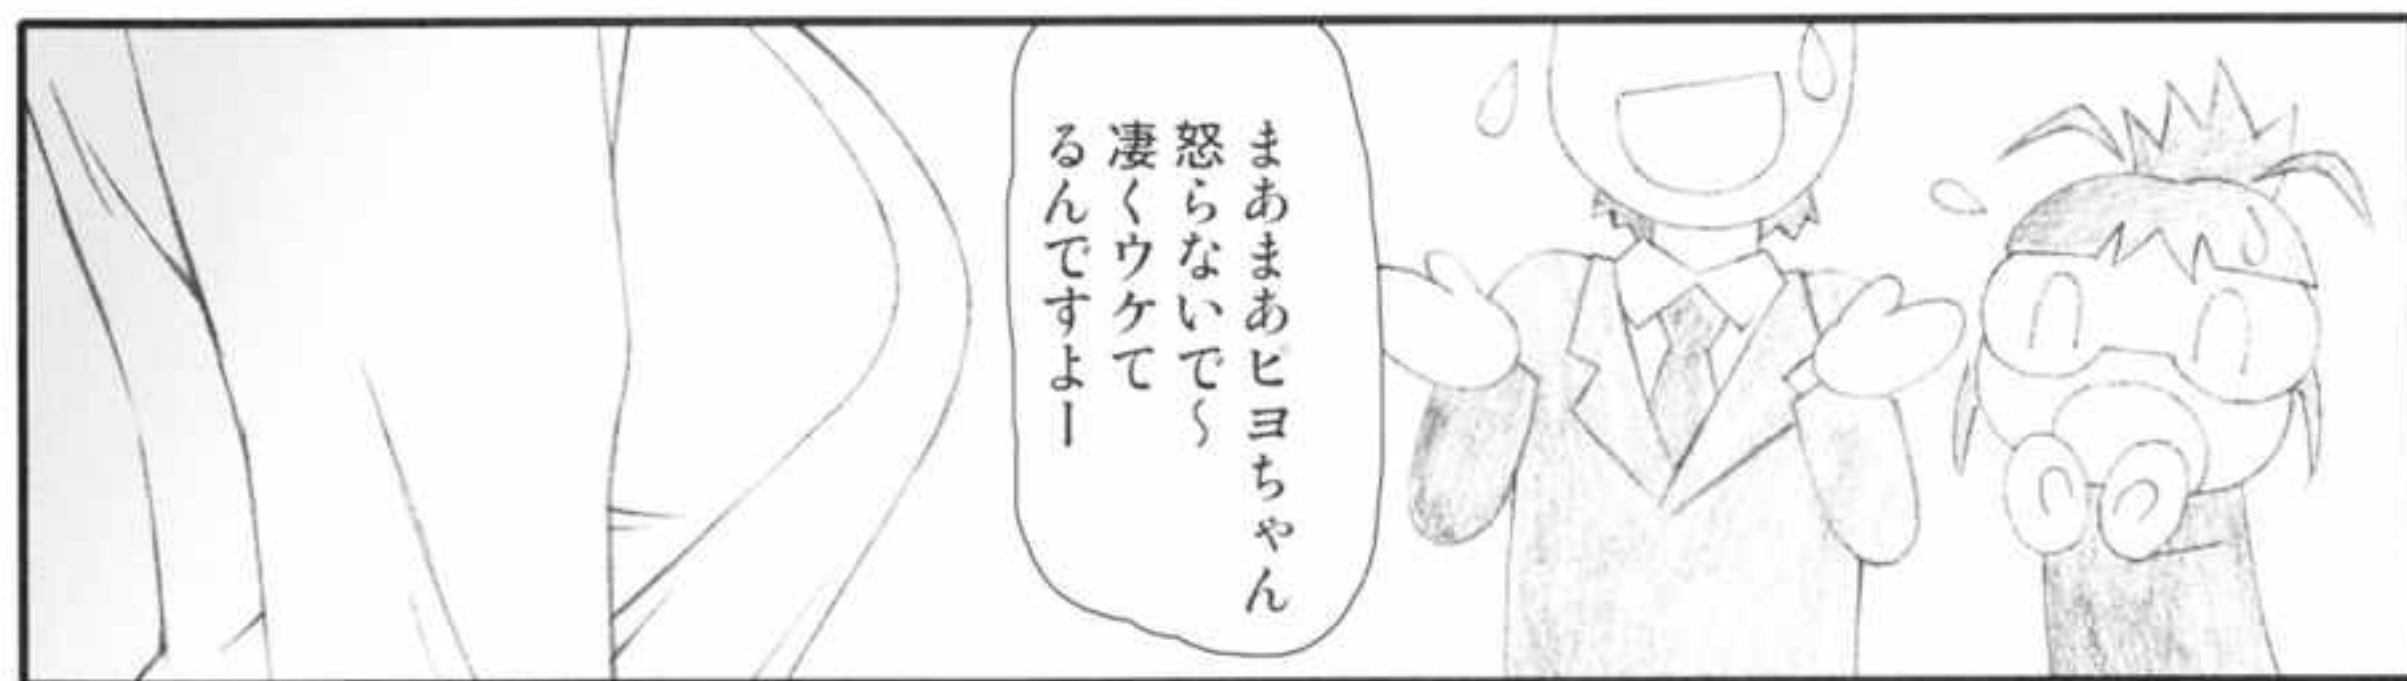 まあまあヒヨちゃん
怒らないで～
凄くウケて
るんですよー